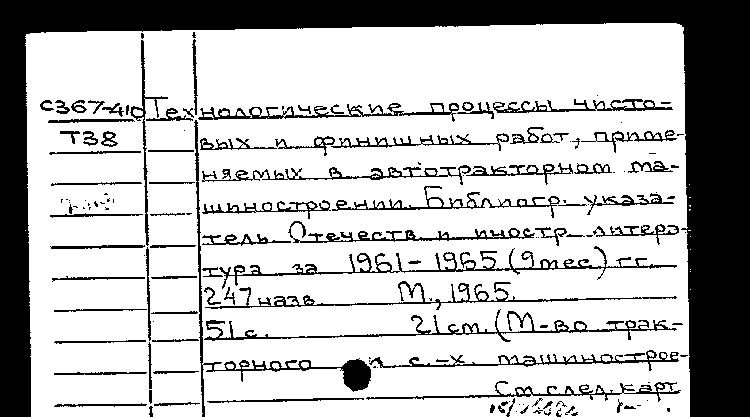 С367-410 Технологические процессы чисто-
Т38 вых и финишных работ, приме-
няемых в автотракторном ма-
шиностроении. Библиогр. указа-
тель. Отечеств. и иностр. литера-
тура за 1961-1965 (9 мес.) гг.
247 назв. М., 1965.
51 с. 21 см. (М-во трак-
торного и с.-х. машинострое-
См. след. карт